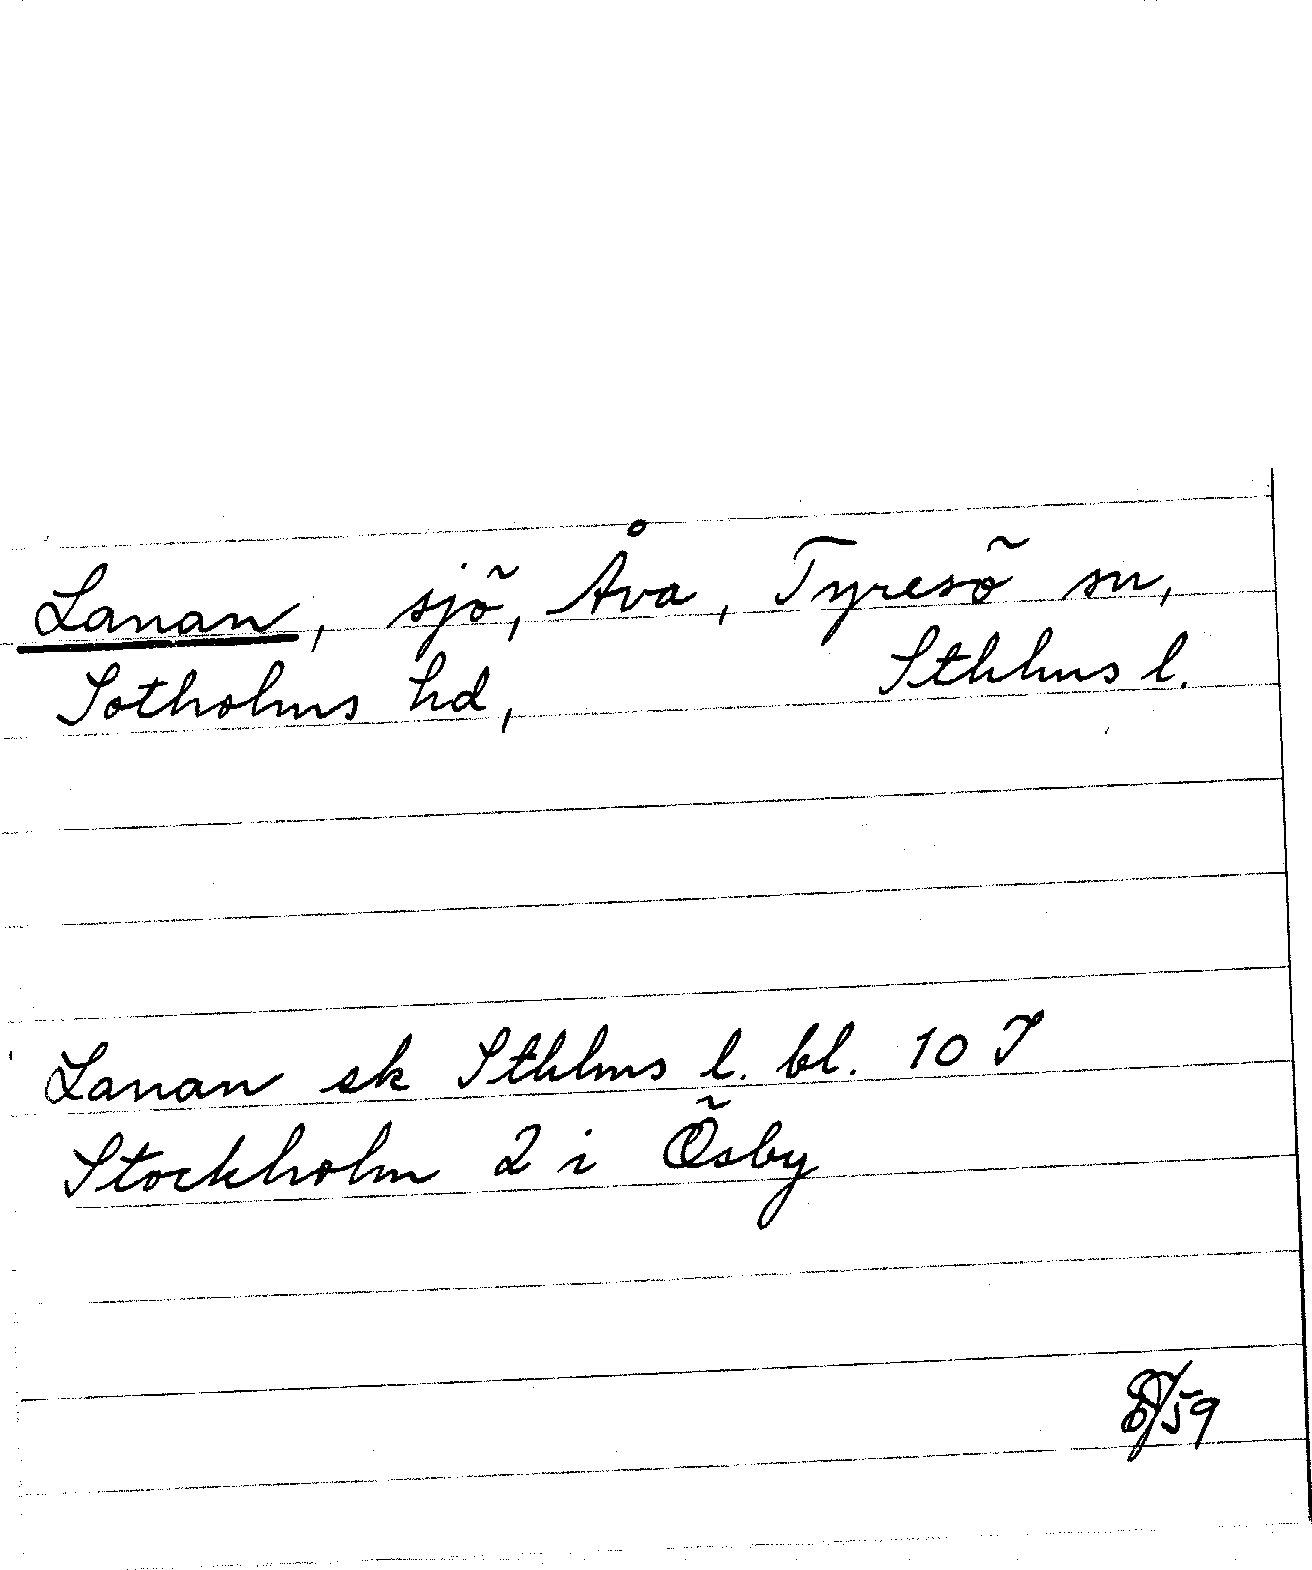 Lanan, sjö, Åva, Tyresö sn,
Sotholms hd, Sthlms l.
Lanan ek Sthlms l. bl. 10 I
Stockholm 2 i Ösby
/59